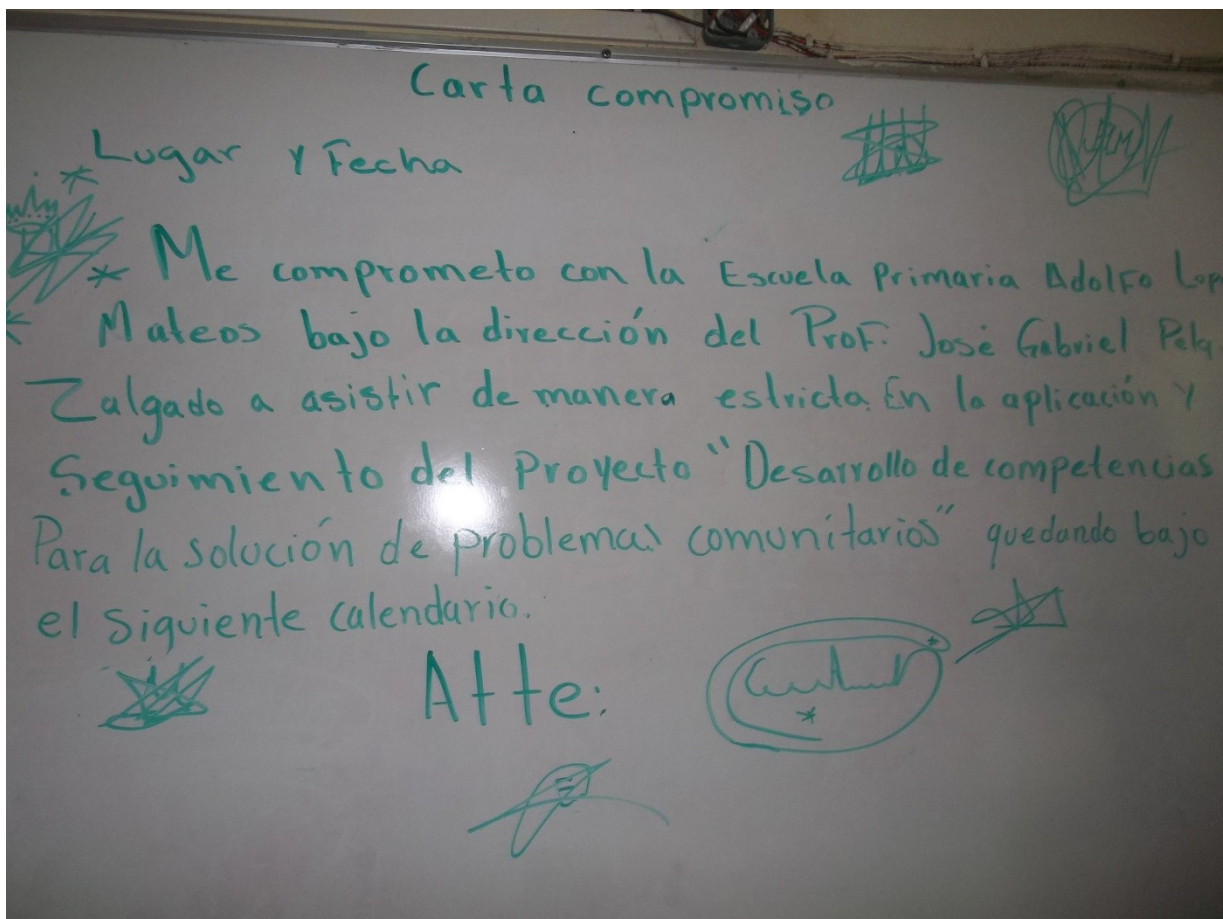 Carta compromiso
Lugar y Fecha
* Me comprometo con la Escuela Primaria Adolfo Lop
Mateos bajo la dirección del Prof. José Gabriel
Zalgado a asistir de manera estricta. En la aplicación y
Seguimiento del Proyecto "Desarrollo de competencias
Para la solución de problemas comunitarios" quedando bajo
el siguiente calendario.
Atte: